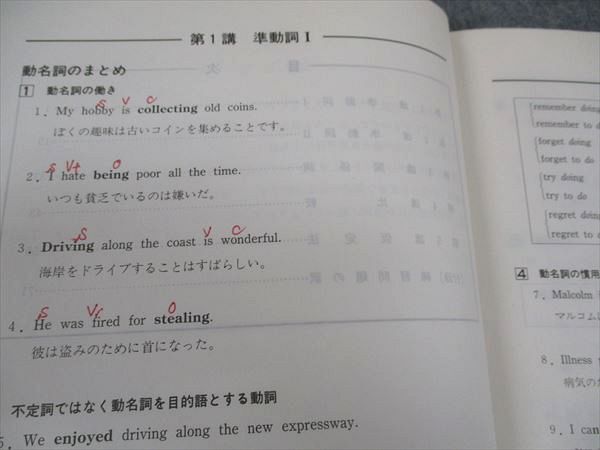 第1講 準動詞 I
動名詞のまとめ
1 動名詞の働き
S V C
1. My hobby is collecting old coins.
ぼくの趣味は古いコインを集めることです。
S Vt O
2. I hate being poor all the time.
いつも貧乏でいるのは嫌いだ。
S V C
3. Driving along the coast is wonderful.
海岸をドライブすることはすばらしい。
S O
4. He was fired for stealing.
彼は盗みのために首になった。
不定詞ではなく動名詞を目的語とする動詞
5. We enjoyed driving along the new expressway.
remember doing
remember to d
forget doing
forget to do
try doing
try to do
regret doing
regret to d
4 動名詞の慣用
7. Malcolm i
マルコムに
8. Illness
病気のた
9. I can